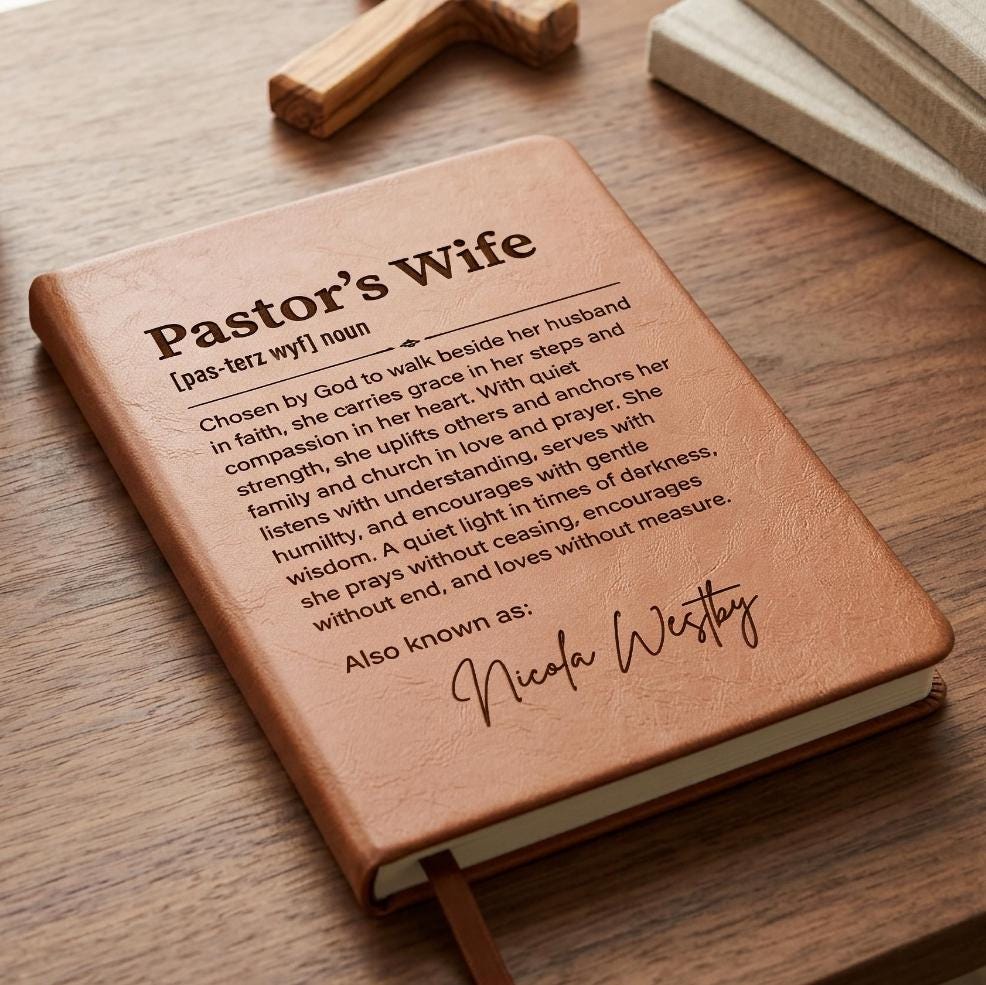 Pastor's Wife
[pas-terz wyf] noun
Chosen by God to walk beside her husband
in faith, she carries grace in her steps and
compassion in her heart. With quiet
strength, she uplifts others and anchors her
family and church in love and prayer. She
listens with understanding, serves with
humility, and encourages with gentle
wisdom. A quiet light in times of darkness,
she prays without ceasing, encourages
without end, and loves without measure.
Also known as:
Nicola Westby